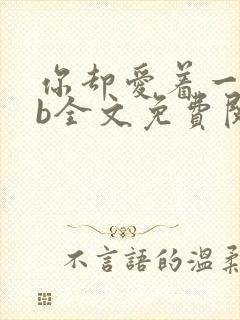 你却爱着一
b全文免費閱
不言語的温柔